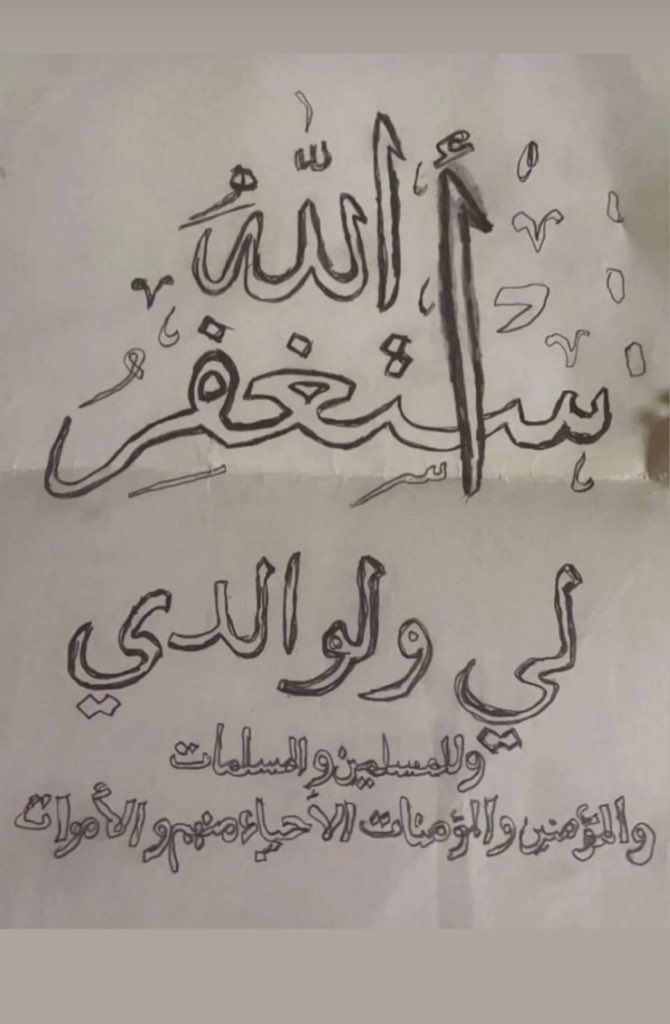 أَستغفِرُ
اللّٰهُ
لي ولوالدي
وللمسلمين والمسلمات
والمؤمنين والمؤمنات الأحياء منهم والأموات